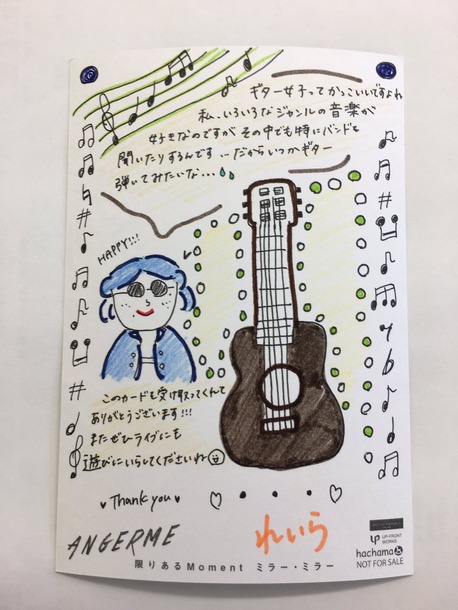 ギター女子ってかっこいいですよね
私、いろいろなジャンルの音楽が
好きなのですが その中でも特にバンドを
聞いたりするんです…だからいつかギター
弾いてみたいな...
HAPPY!!!
このカードも受け取ってくれて
ありがとうございます!!!
またぜひライブにも
遊びにいらしてくださいね
Thank you
ANGERME
れいら
UP-FRONT WORKS
hachama
限りあるMoment ミラー・ミラー
NOT FOR SALE